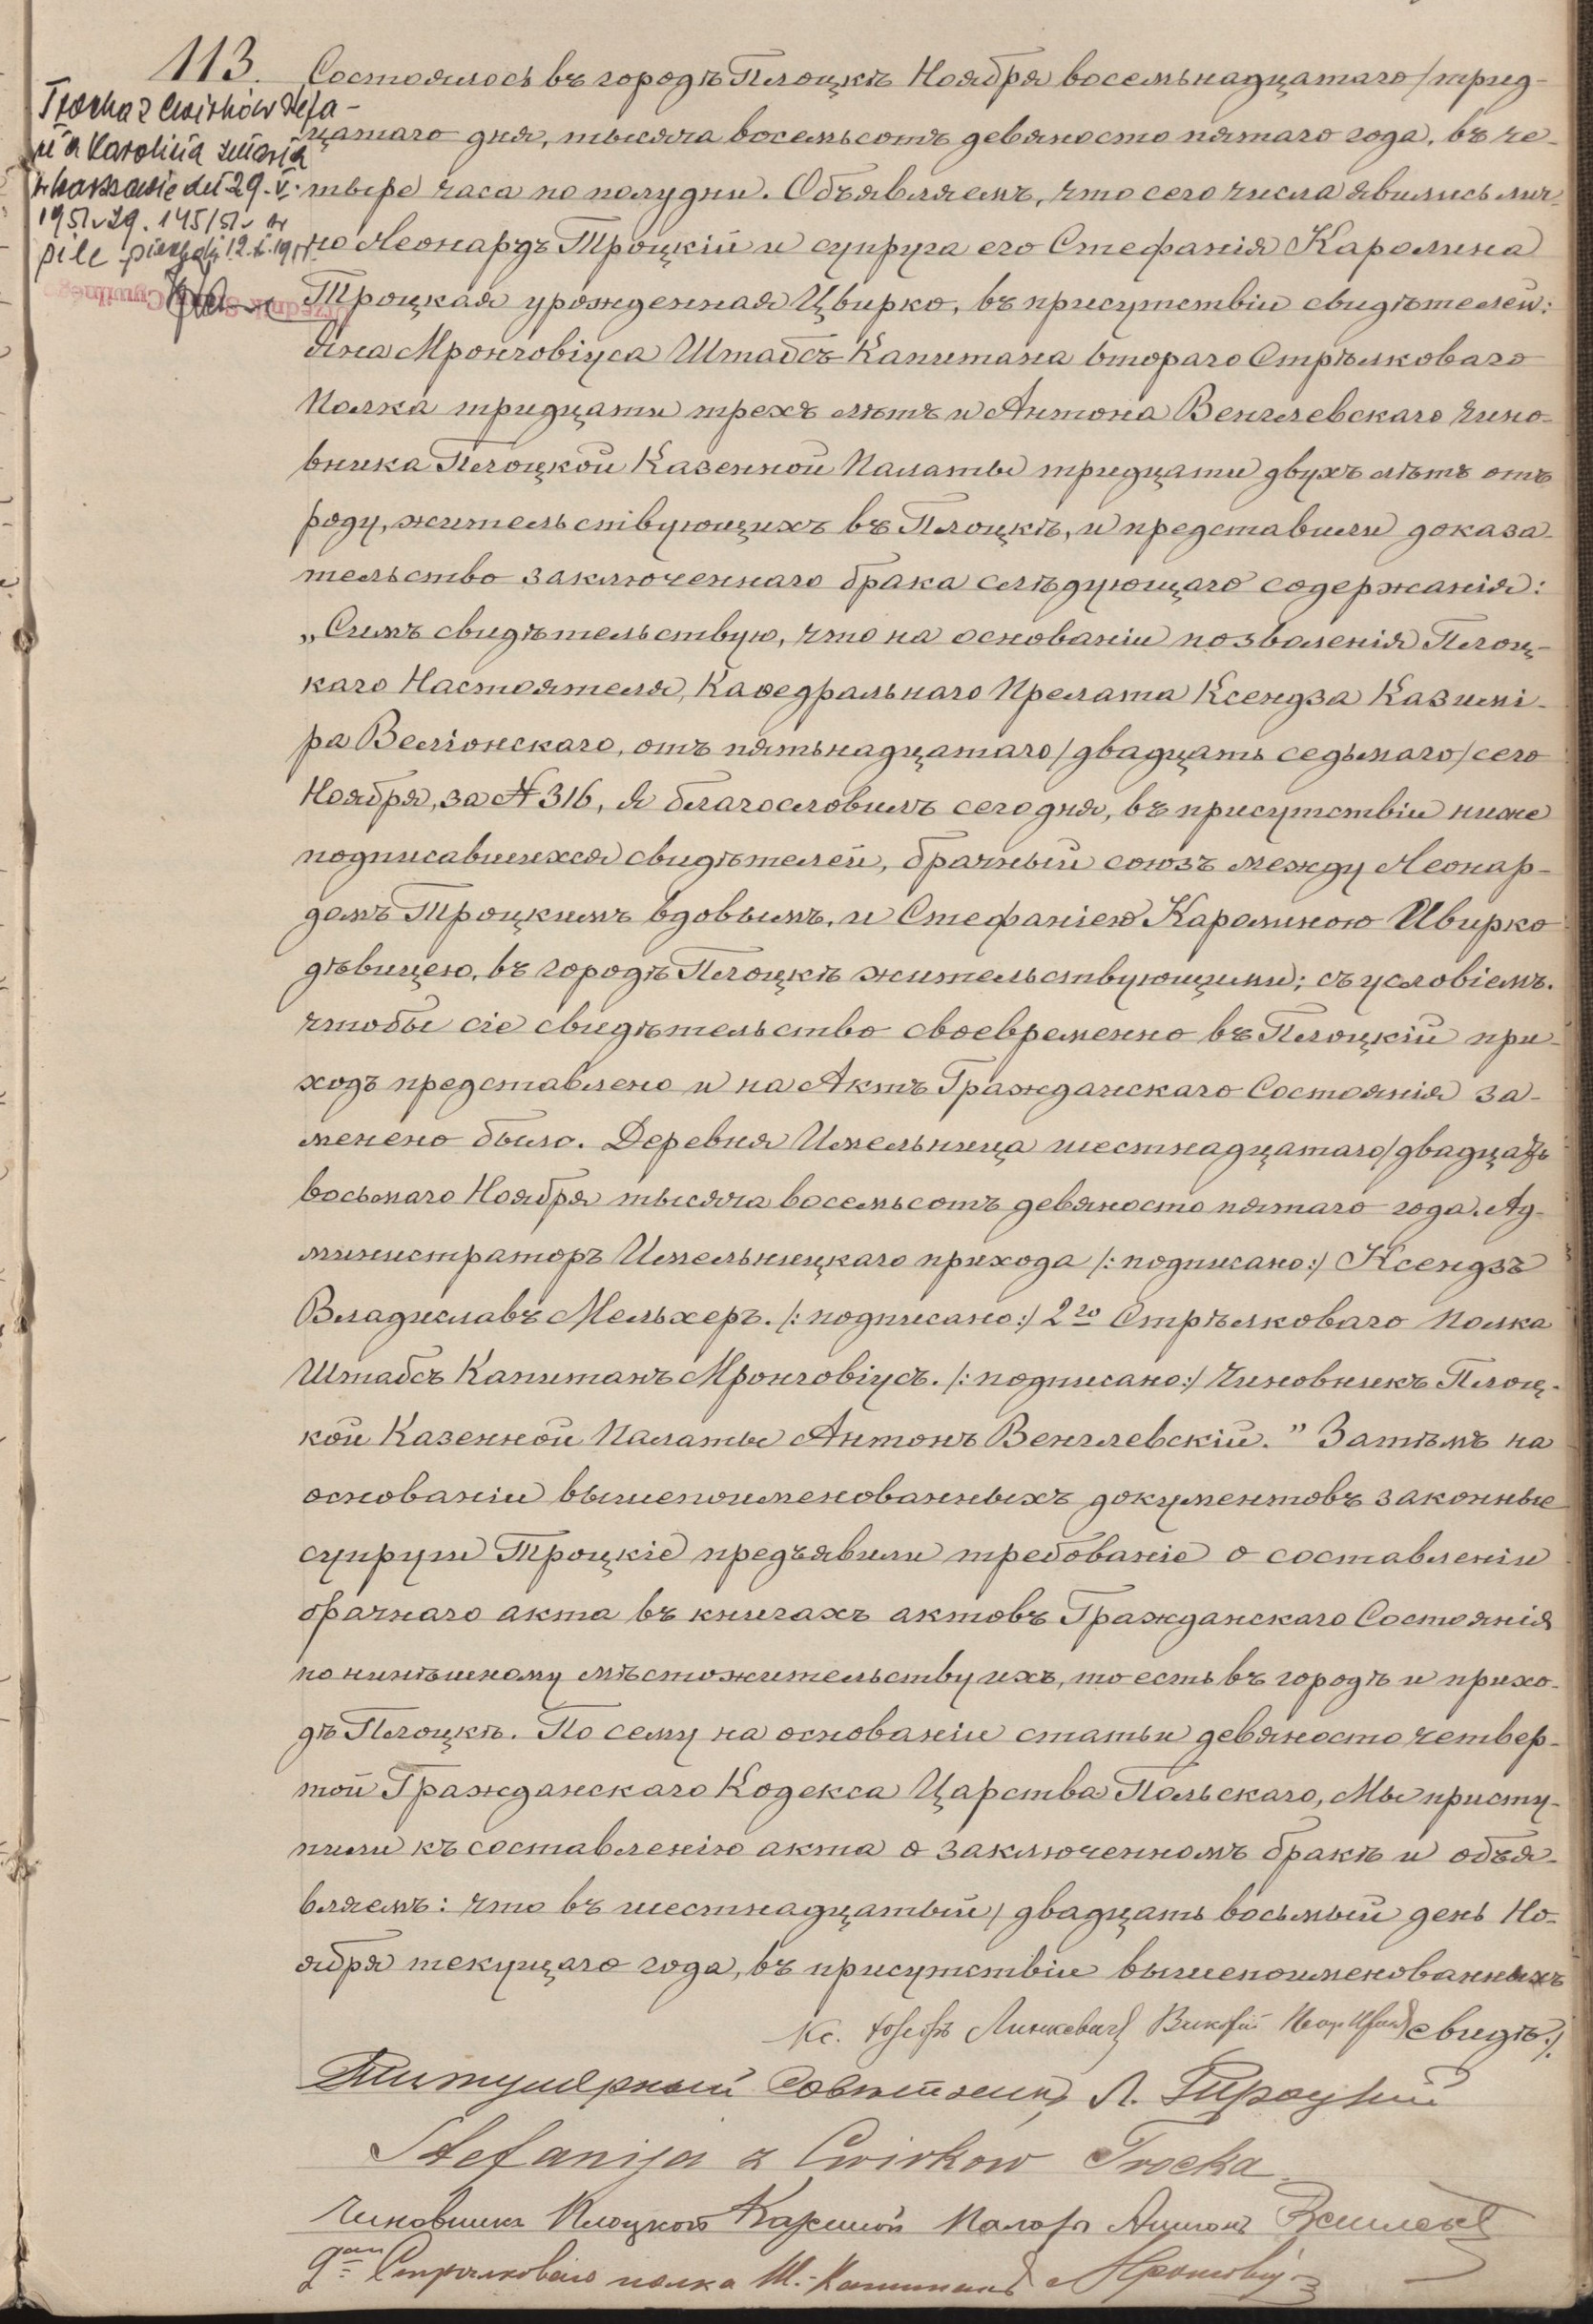 113.
Trocka z Cwirków Stefa-
nia Karolina zmarła
w Warszawie dn 29. V.
1951 v 29. 145/51 v
Состоялось въ городѣ Плоцкѣ Ноября восемьнадцатаго/трид-
цатаго дня, тысяча восемьсотъ девяносто пятаго года, въ че-
твере часа по полудни. Объявляемъ, что сего числа явились лич-
но Леонардъ Троцкій и супруга его Стефанія Каролина
Троцкая урожденная Цвирко, въ присутствіи свидѣтелей:
Яна Мронговіуса Штабсъ Капитана втораго Стрѣлковаго
Полка тридцати трехъ лѣтъ и Антона Венглевскаго чино-
вника Плоцкой Казенной Палаты тридцати двухъ лѣтъ отъ
роду, жительствующихъ въ Плоцкѣ, и представили доказа-
тельство заключеннаго брака слѣдующаго содержанія:
„Симъ свидѣтельствую, что на основаніи позволенія Плоц-
каго Настоятеля, Каѳедральнаго Прелата Ксендза Казимі-
ра Веліонскаго, отъ пятьнадцатаго/двадцать седьмаго/сего
Ноября, за № 316, я благословилъ сего дня, въ присутствіи ниже
подписавшихся свидѣтелей, брачный союзъ между Леонар-
домъ Троцкимъ вдовымъ, и Стефаніею Каролиною Цвирко
дѣвицею, въ городѣ Плоцкѣ жительствующими; съ условіемъ.
чтобы сіе свидѣтельство своевременно въ Плоцкій при-
ходъ представлено и на Актъ Гражданскаго Состоянія за-
менено было. Деревня Имельница шестнадцатаго/двадцать
восьмаго Ноября тысяча восемьсотъ девяносто пятаго года. Ад-
министраторъ Имельницкаго прихода /:подписано:/ Ксендзъ
Владиславъ Мельхеръ. /:подписано:/ 2го Стрѣлковаго Полка
Штабсъ Капитанъ Мронговіусъ. /:подписано:/ Чиновникъ Плоц-
кой Казенной Палаты Антонъ Венглевскій.” Затѣмъ на
основаніи вышепоименованныхъ документовъ законные
супруги Троцкіе предъявили требованіе о составленіи
брачнаго акта въ книгахъ актовъ Гражданскаго Состоянія
по нинѣшному мѣстожительству ихъ, то есть въ городѣ и прихо-
дѣ Плоцкѣ. По сему на основаніи статьи девяносто четвер-
той Гражданскаго Кодекса Царства Польскаго, Мы присту-
пили къ составленію акта о заключенномъ бракѣ и объя-
вляемъ: что въ шестнадцатый/двадцать восьмый день Но-
ября текущаго года, въ присутствіи вышепоименованныхъ
Кс. Іосифъ Викарій свидѣ:/.
Титулярный Совѣтникъ Л. Троцкій
Stefanija z Cwirków Trocka
Чиновникъ Плоцкой Казенной Палаты Антонъ Венглевскій
2го Стрѣлковаго полка Ш.-Капитанъ Мронговіусъ